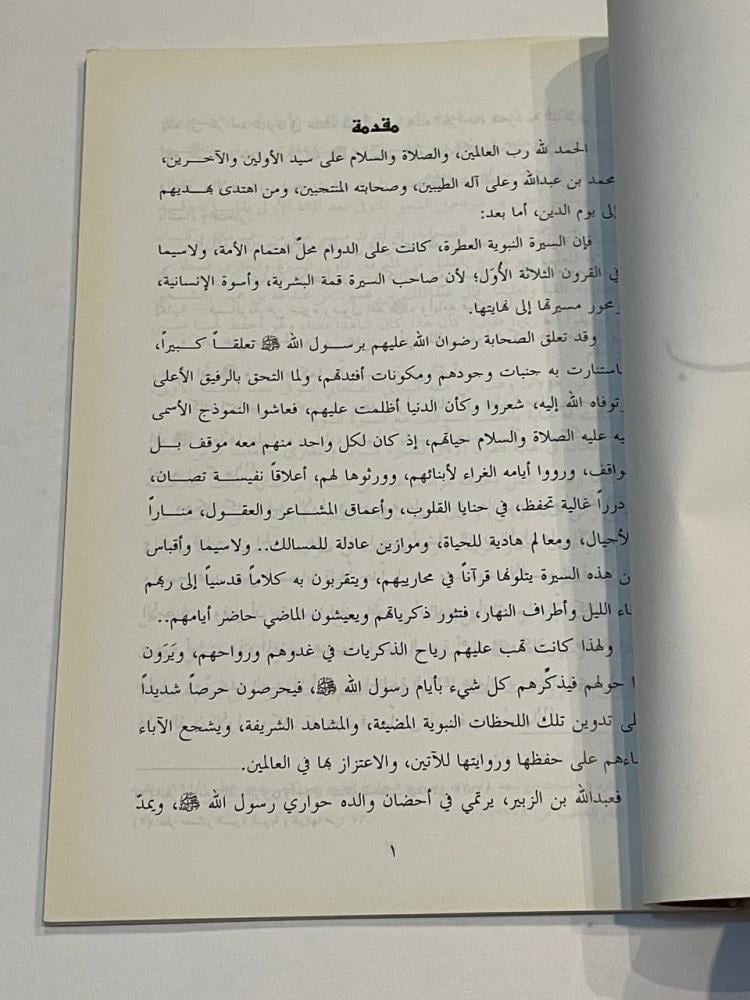 مقدمة
الحمد لله رب العالمين، والصلاة والسلام على سيد الأولين والآخرين،
محمد بن عبدالله وعلى آله الطيبين، وصحابته المنتجبين، ومن اهتدى بهديهم
إلى يوم الدين، أما بعد:
فإن السيرة النبوية العطرة، كانت على الدوام محلّ اهتمام الأمة، ولاسيما
في القرون الثلاثة الأُوَل؛ لأن صاحب السيرة قمة البشرية، وأسوة الإنسانية،
محور مسيرتها إلى نهايتها.
وقد تعلق الصحابة رضوان الله عليهم برسول الله ﷺ تعلقاً كبيراً،
استنارت به جنبات وجودهم ومكونات أفئدتهم، ولما التحق بالرفيق الأعلى
توفاه الله إليه، شعروا وكأن الدنيا أظلمت عليهم، فعاشوا النموذج الأسمى
عليه الصلاة والسلام حياتهم، إذ كان لكل واحد منهم معه موقف بل
واقف، ورووا أيامه الغراء لأبنائهم، وورثوها لهم، أعلاقاً نفيسة تصان،
درراً غالية تحفظ، في حنايا القلوب، وأعماق المشاعر والعقول، مناراً
لأجيال، ومعالم هادية للحياة، وموازين عادلة للمسالك.. ولاسيما وأقباس
هذه السيرة يتلونها قرآناً في محاريبهم، ويتقربون به كلاماً قدسياً إلى ربهم
الليل وأطراف النهار، فتثور ذكرياتهم ويعيشون الماضي حاضر أيامهم..
ولهذا كانت تهب عليهم رياح الذكريات في غدوهم ورواحهم، ويَرَون
حولهم فيذكّرهم كل شيء بأيام رسول الله ﷺ، فيحرصون حرصاً شديداً
تدوين تلك اللحظات النبوية المضيئة، والمشاهد الشريفة، ويشجع الآباء
على حفظها وروايتها للآتين، والاعتزاز بها في العالمين.
فعبدالله بن الزبير، يرتمي في أحضان والده حواري رسول الله ﷺ، ويمدّ
١